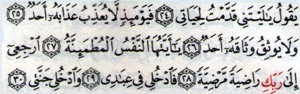 يَقُولُ يَٰلَيْتَنِي قَدَّمْتُ لِحَيَاتِي ٢٤ فَيَوْمَئِذٍ لَّا يُعَذِّبُ عَذَابَهُۥٓ أَحَدٌ ٢٥
وَلَا يُوثِقُ وَثَاقَهُۥٓ أَحَدٌ ٢٦ يَٰٓأَيَّتُهَا ٱلنَّفْسُ ٱلْمُطْمَئِنَّةُ ٢٧ ٱرْجِعِىٓ
إِلَىٰ رَبِّكِ رَاضِيَةً مَّرْضِيَّةً ٢٨ فَٱدْخُلِى فِى عِبَٰدِى ٢٩ وَٱدْخُلِى جَنَّتِى ٣٠